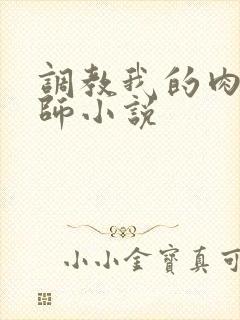 調教我的肉
師小説
小小金寶真可